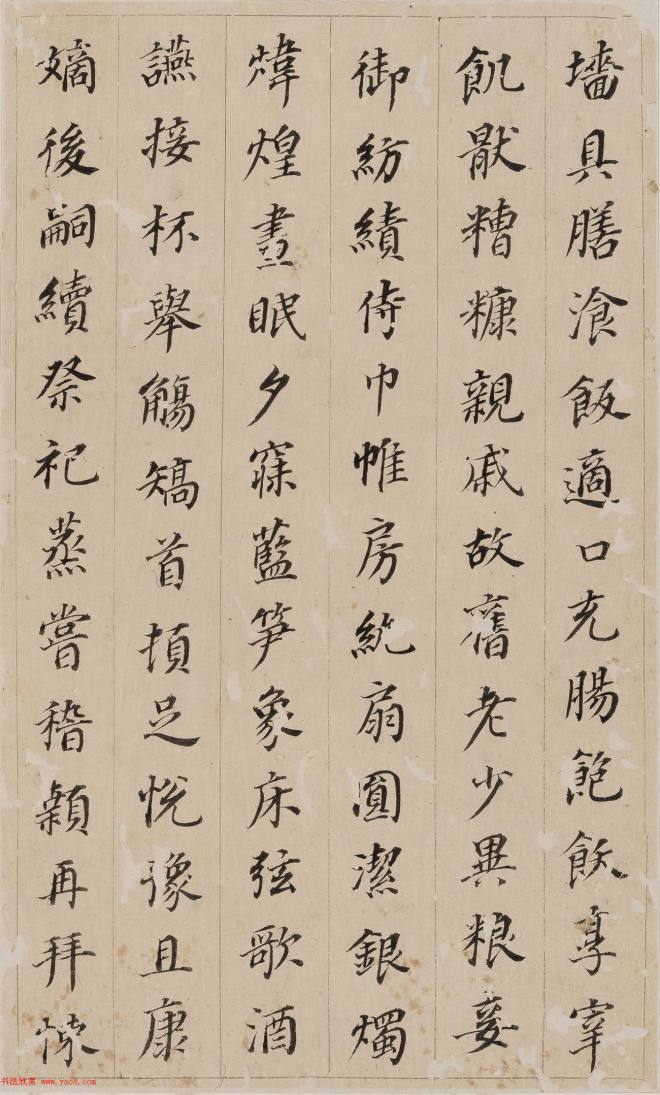 墻具膳湌飯適口充腸飽飫享宰
飢猒糟糠親戚故舊老少異粮妾
御紡績侍巾帷房紈扇圓潔銀燭
煒煌晝眠夕寐藍笋象床弦歌酒
讌接杯舉觴矯首頓足悅豫且康
嫡後嗣續祭祀蒸嘗稽顙再拜悚
书法欣赏 www.yac8.com